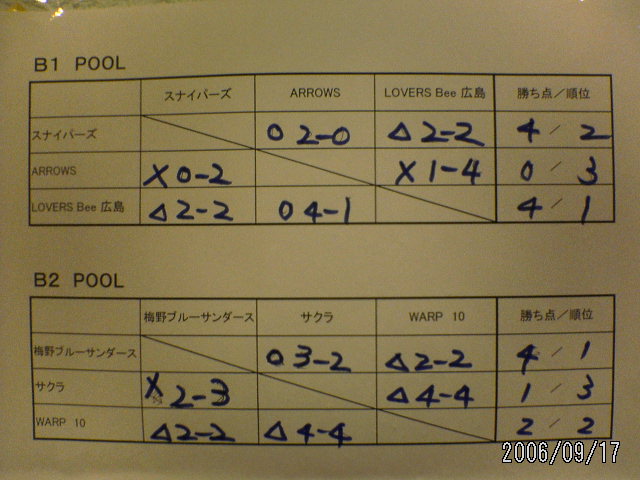 B1 POOL
スナイパーズ ARROWS LOVERS Bee 広島 勝ち点／順位
スナイパーズ O 2-0 △ 2-2 4 / 2
ARROWS X 0-2 X 1-4 0 / 3
LOVERS Bee 広島 △ 2-2 O 4-1 4 / 1
B2 POOL
梅野ブルーサンダース サクラ WARP 10 勝ち点／順位
梅野ブルーサンダース O 3-2 △ 2-2 4 / 1
サクラ X 2-3 △ 4-4 1 / 3
WARP 10 △ 2-2 △ 4-4 2 / 2
2006/09/17